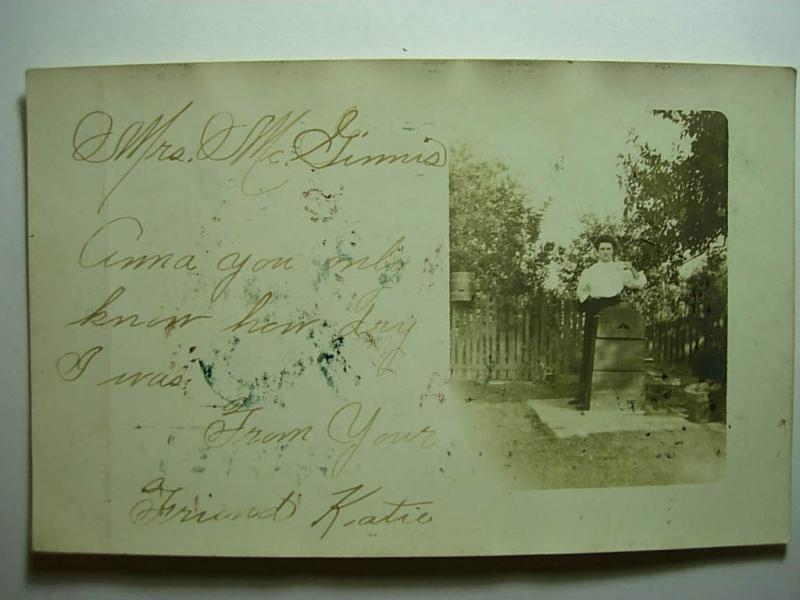 Mrs. Mc. Ginnis
Anna you only
know how dry
I was.
From Your
Friend Katie